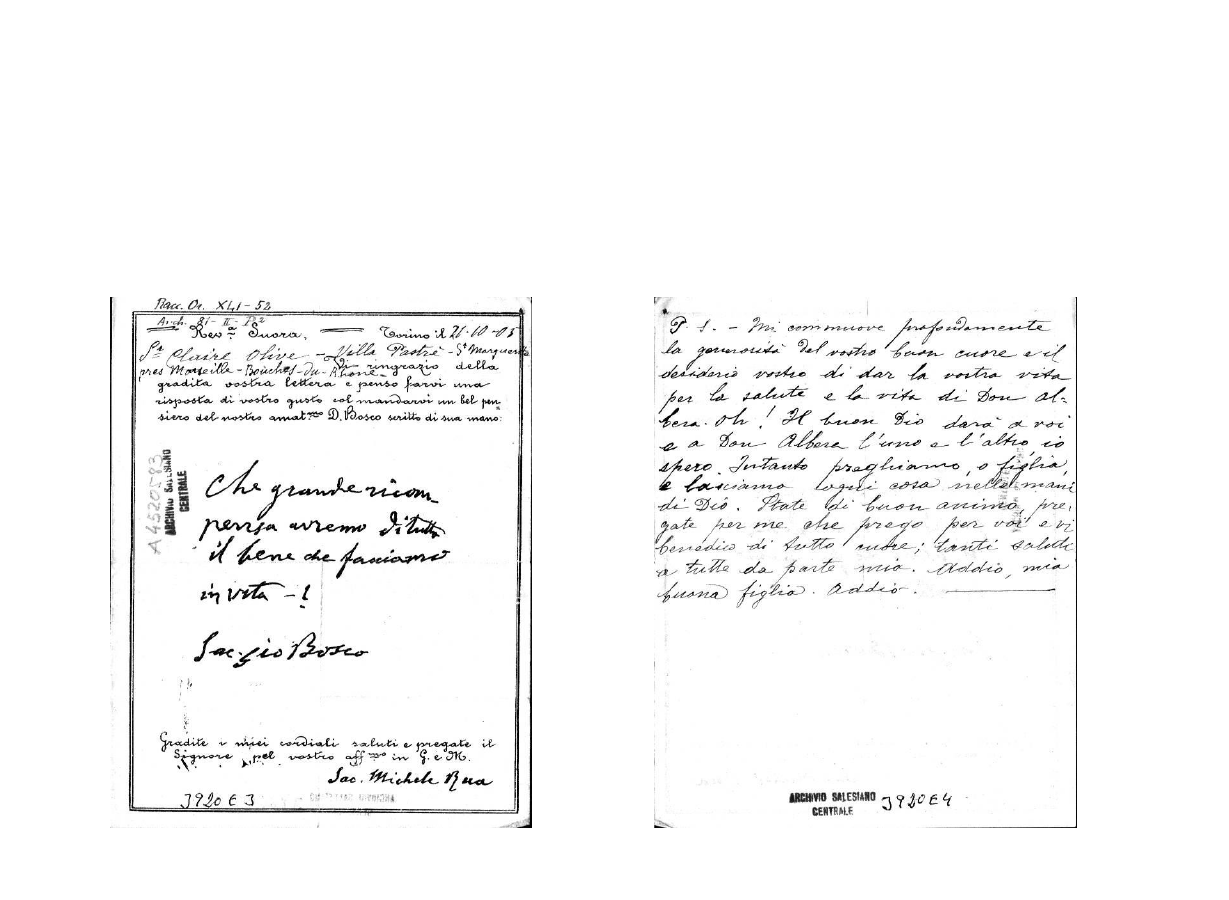 Racc. Or. XLI - 52
Arch. 31 - II - P. 2
Rev.a Suora, Torino il 21-10-05
Sr Claire Olive - Villa Pastrè - Ste Marguerite
près Marseille - Bouches-du-Rhône -
Vi ringrazio della
gradita vostra lettera e penso farvi una
risposta di vostro gusto col mandarvi un bel pen-
siero del nostro amat.mo D. Bosco scritto di sua mano:
A4520583
ARCHIVIO SALESIANO
CENTRALE
Che grande ricom
pensa avremo di tutto
il bene che facciamo
in vita - !
Sac. Gio Bosco
Gradite i miei cordiali saluti e pregate il
Signore pel vostro aff.mo in G. e M.
Sac. Michele Rua
3920 E 3
P. S. - Mi commuove profondamente
la generosità del vostro buon cuore e il
desiderio vostro di dar la vostra vita
per la salute e la vita di Don Al-
bera. Oh! Il buon Dio darà a voi
e a Don Albera l'uno e l'altro io
spero. Intanto preghiamo, o figlia,
e lasciamo ogni cosa nelle mani
di Dio. State di buon animo, pre-
gate per me che prego per voi e vi
benedico di tutto cuore; tanti saluti
a tutte da parte mia. Addio, mia
buona figlia. Addio.
ARCHIVIO SALESIANO
CENTRALE
3920 E 4